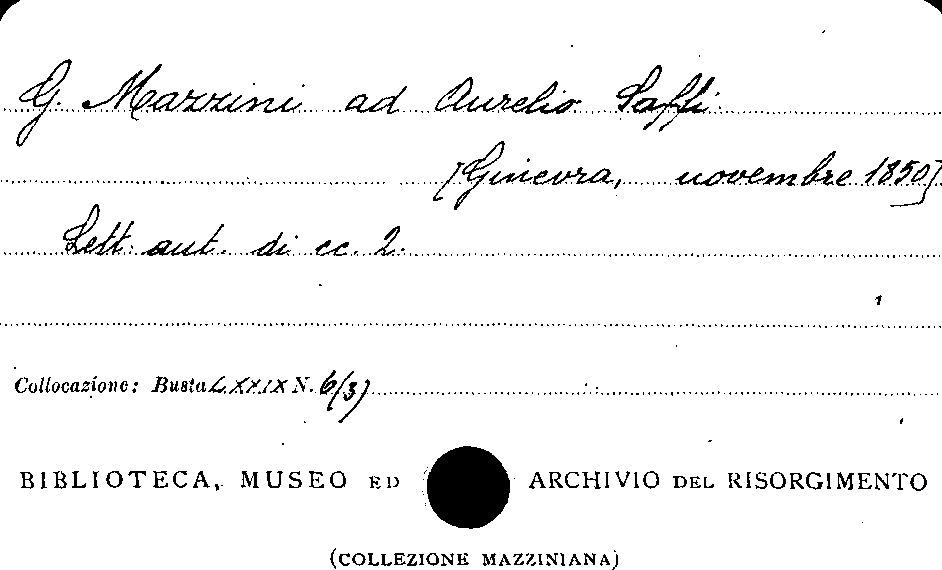 G. Mazzini ad Aurelio Saffi.
[Ginevra, novembre 1850]
Lett. aut. di cc. 2.
Collocazione: Busta LXXIX N. 6/3)
BIBLIOTECA, MUSEO ED ARCHIVIO DEL RISORGIMENTO
(COLLEZIONE MAZZINIANA)